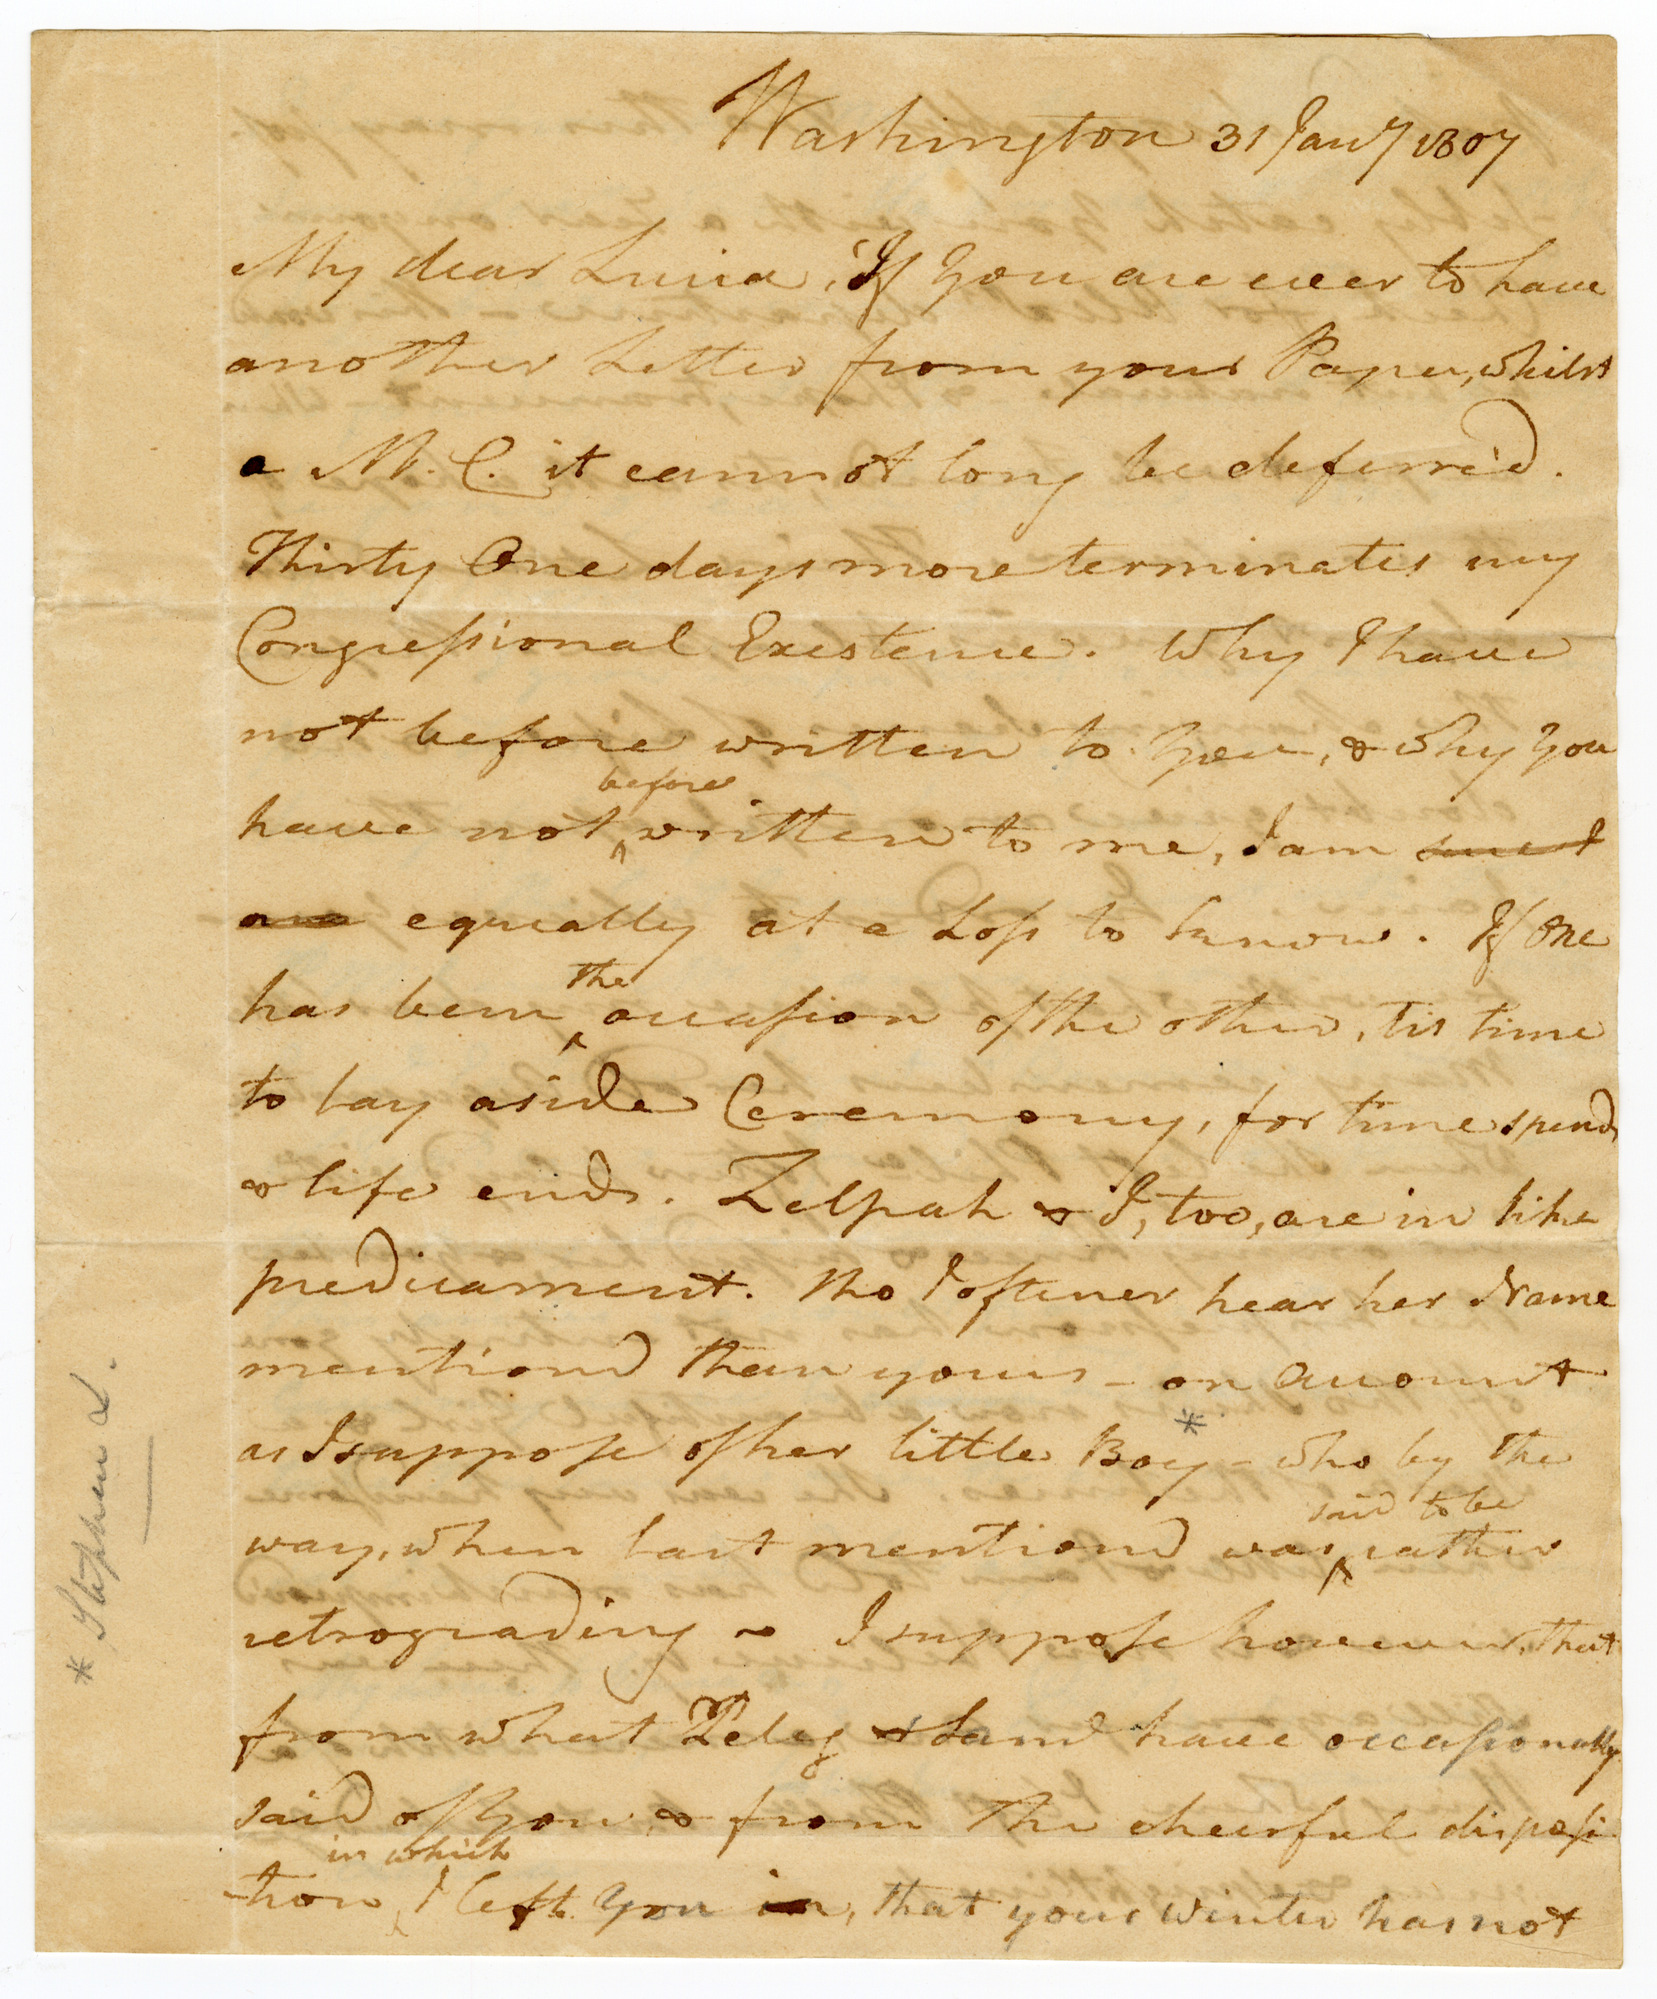 Washington 31 Jan'y 1807
My dear Lucia, If You are ever to have
another Letter from your Papa, whilst
a M. C. it cannot long be deferred.
Thirty One days more terminates my
Congressional Existence. Why I have
not before written to You, & why You
before
have not ^ written to me, I am
equally at a Loss to know. If One
the
has been ^ occasion of the other, tis time
to lay aside Ceremony, for time spends
& life ends. Zelpah & I, too, are in like
predicament. tho I oftener hear her Name
mention'd than yours - on account
as I suppose of her little Boy * - who by the
said to be
way, when last mention'd was ^ rather
retrograding ~ I suppose however, that
from what Peleg & Samł have occasionally
said of You & from the cheerful disposi
in which
-tion ^ I left You in, that your Winter has not
* Stephen L.